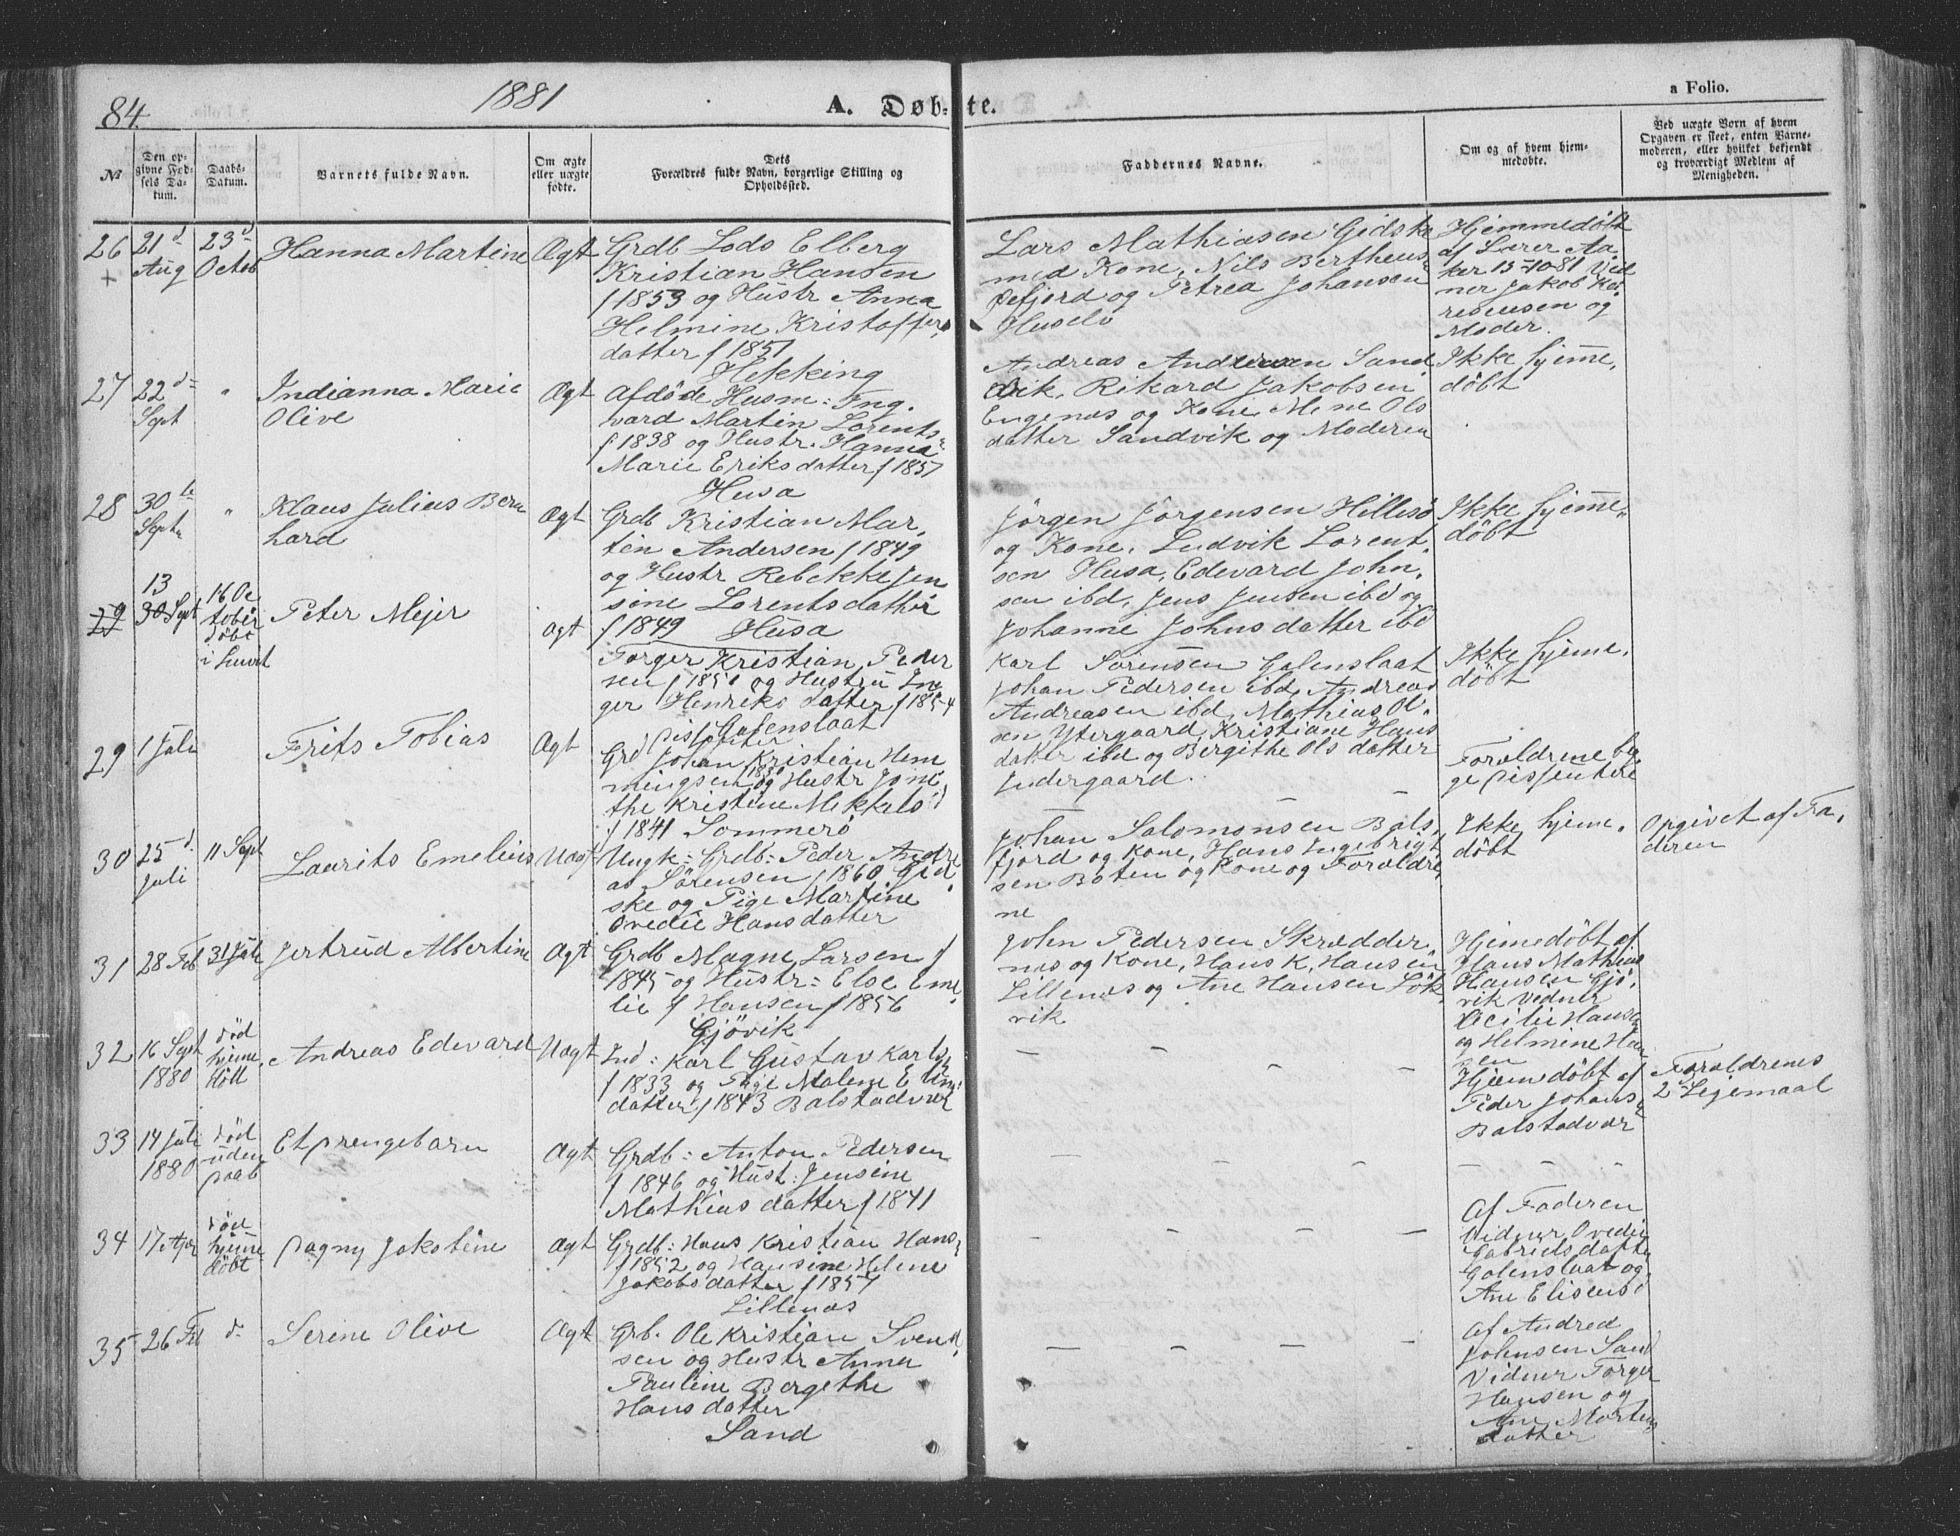 84.
1881
A. Døb-
te.
a Folio.
№
Den op-
givne Fød-
sels Da-
tum.
Daabs-
Datum.
Barnets fulde Navn.
Om ægte
eller uægte
fødte.
Dets
Forældres fulde Navn, borgerlige Stilling og
Opholdssted.
Faddernes Navne.
Om og af hvem hjem-
medøbte.
Ved uægte Børn af hvem
Opgaven er skeet, enten Barne-
moderen, eller hvilket bekjendt
og troværdigt Medlem af
Menigheden.
26
+
21 d
Aug
23 d
Octob
Hanna Martine
Ægt
Grdb Lods Elberg
Kristian Hansen
f 1853 og Hustr Anna
Helmine Kristoffers
datter f 1851
Hekking
Lars Mathiasen Gidske
med Kone, Nils Bertheus
og Petrea Johansen
Huselo
Hjemmedøbt
af Lærer Aa
ker 15-10-81 Vid
ner Jakob
og
Moder.
27
22 d
Sept
"
Indianna Marie
Olive
Ægt
Afdøde Husm: Ing.
vard Martin Lorents
f 1838 og Hustr. Hanna
Marie Eriksdatter f 1857
Husa
Andreas Andersen Sand
vik, Rikard Jakobsen
Engenæs og Kone, Mine Ols
datter Sandvik og Moderen
Ikke hjeme,
døbt
28
30 te
Septr
"
Klaus Julius Bern
hard
Ægt
Grdb Kristian Mar,
tin Andersen f 1849
og Hustr Rebekka Jen
sine Lorentsdatter
f 1849 Husa
Jörgen Jörgensen Hillesö
og Kone, Ludvik Lorent
sen Husa, Edevard John,
sen ibd, Jens Jensen ibd og
Johanne Johnsdatter ibd
Ikke hjeme
döbt
29
13
30 Sept
16 Oc
tober
döbt
i
Peter Mejer
Ægt
Torger Kristian Peder
sen f 1850 og Hustru In
ger Henriksdatter f 1854
Galenslaat
Karl Sörensen Galenslaat
Johan Pedersen ibd, Andreas
Andreasen ibd, Mathias Ol
sen Ytergaard, Kristiane Hans
datter ibd og Bergithe Olsdatter
Indergaard.
Ikke hjeme,
döbt
29
1 Juli
Frits Tobias
Ægt
Dissenter
Grd Johan Kristian Hem
mingsen 1830 og Hustr
the Kristine Mikkels
f 1841 Sommerö
Forældrene beg
ge Dissentere
30
25 d
Juli
11 Sept
Laurits Emelius
Uægt
Ungk: Grdb: Peder Andre
as Sörensen f 1860 Gid
ske og Pige Martine
Ovedie Hansdatter
Johan Salomonsen Bals,
fjord og Kone, Hans Ingebrigt
sen Boten og Kone og Forældre,
ne
Ikke hjeme,
döbt
Opgivet af Fa,
deren
31
28 Feb
31 Juli
Jertrud Albertine
Ægt
Grdb Magne Larsen f
1845 og Hustr: Else Eme
lie f Hansen f 1856
Gjövik
John Pedersen Skrædder,
næs og Kone, Hans K. Hansen
Lillenæs og Ane Hansen Lök
vik
Hjemedöbt af
Hans Mathias
Hansen Gjö,
vik Vidner
Cecilie Hansen
og Helmine Han
sen
32
16 Sept
1880
död
hjeme
döbt
Andreas Edevard
Uægt
Ind: Karl Gustav Karls
f 1833 og Pige Malene
datter f 1843 Balstadvær
Hjem döbt af
Peder Johans
Balstadvær
Forældrenes
2 Lejemaal
33
14 Juli
1880
död
uden
daab
Et Drengebarn
Ægt
Grdb: Anton Pedersen
f 1846 og Hust: Jensine
Mathiasdatter f 1841
34
17
död
hjeme
döbt
Dagny Jakobine
Ægt
Grdb: Hans Kristian Hans
f 1852 og Hansine Helene
Jakobsdatter f 1857
Lillenæs
Af Faderen
Vidner Ovedie
Gabrielsdatter
Galenslaat og
Ane Elisens
35
26 Feb
d
Serine Olive
Ægt
Grb. Ole Kristian Svend
sen og Hustr Anna
Pauline Bergethe
Hansdatter
Sand
Af Andreä
Johnsen Sand
Vidner Torger
Hansen og
Ane Mortens
datter